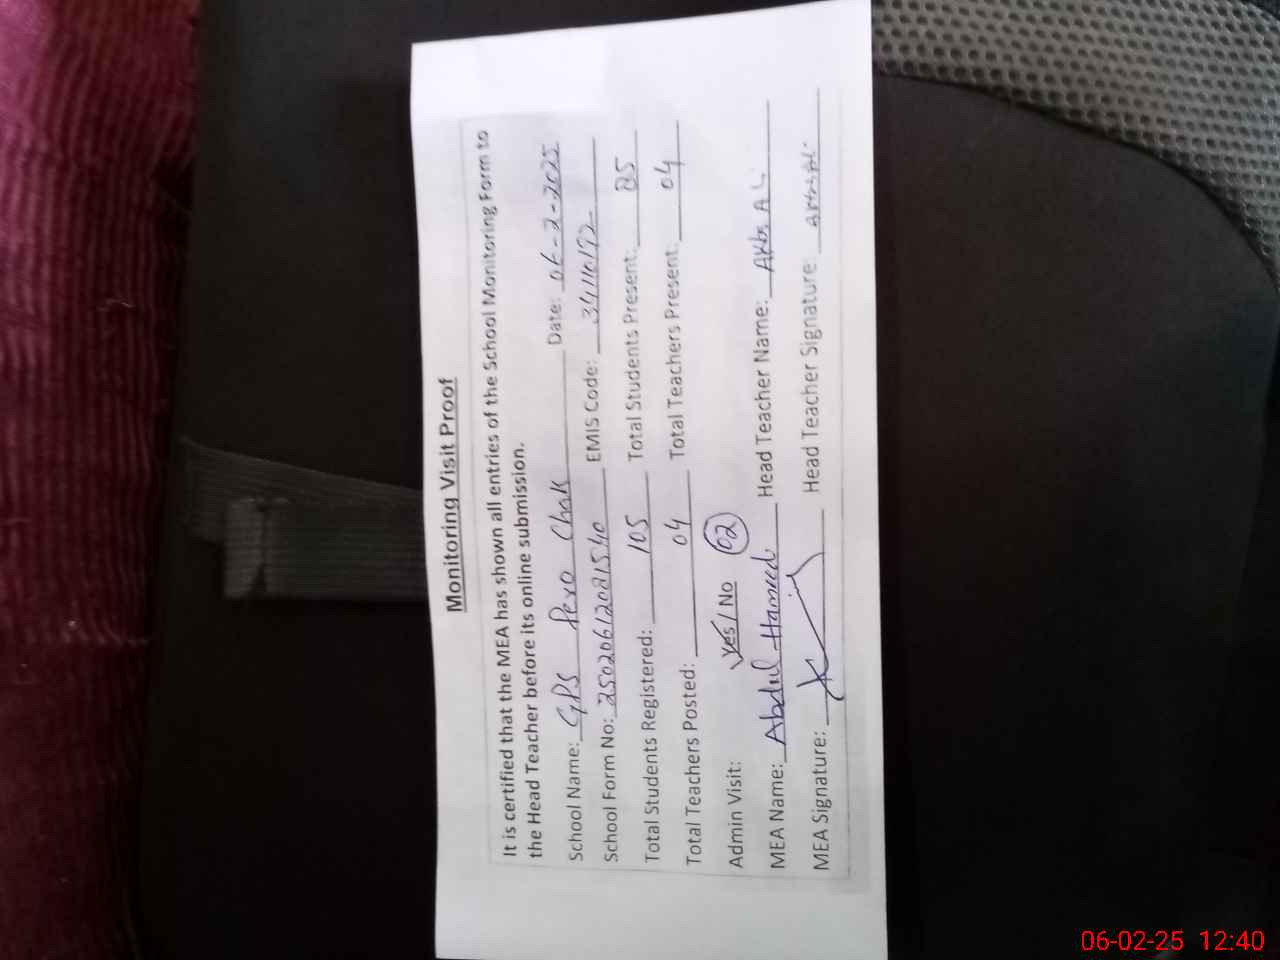 Monitoring Visit Proof
It is certified that the MEA has shown all entries of the School Monitoring Form to
the Head Teacher before its online submission.
School Name: GPS Pero Chak Date: 06-2-2025
School Form No: EMIS Code:
Total Students Registered: 105 Total Students Present: 85
Total Teachers Posted: 04 Total Teachers Present: 04
Admin Visit: Yes / No 02
MEA Name: Abdul Hameed Head Teacher Name:
MEA Signature: Head Teacher Signature:
06-02-25 12:40